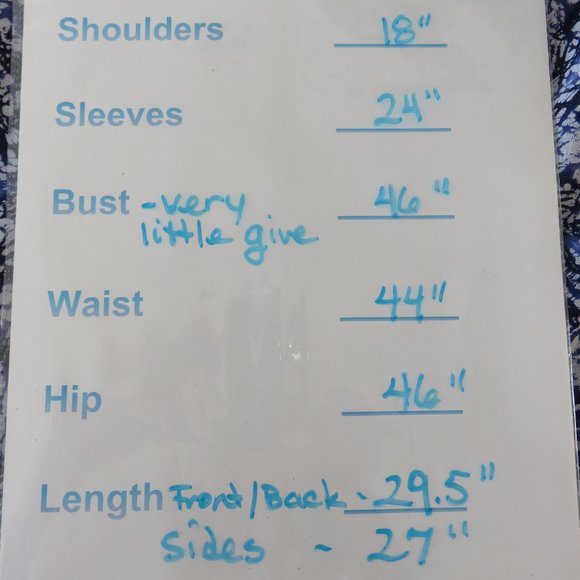 Shoulders 18"
Sleeves 24"
Bust - very 46"
little give
Waist 44"
Hip 46"
Length Front/Back - 29.5"
sides - 27"